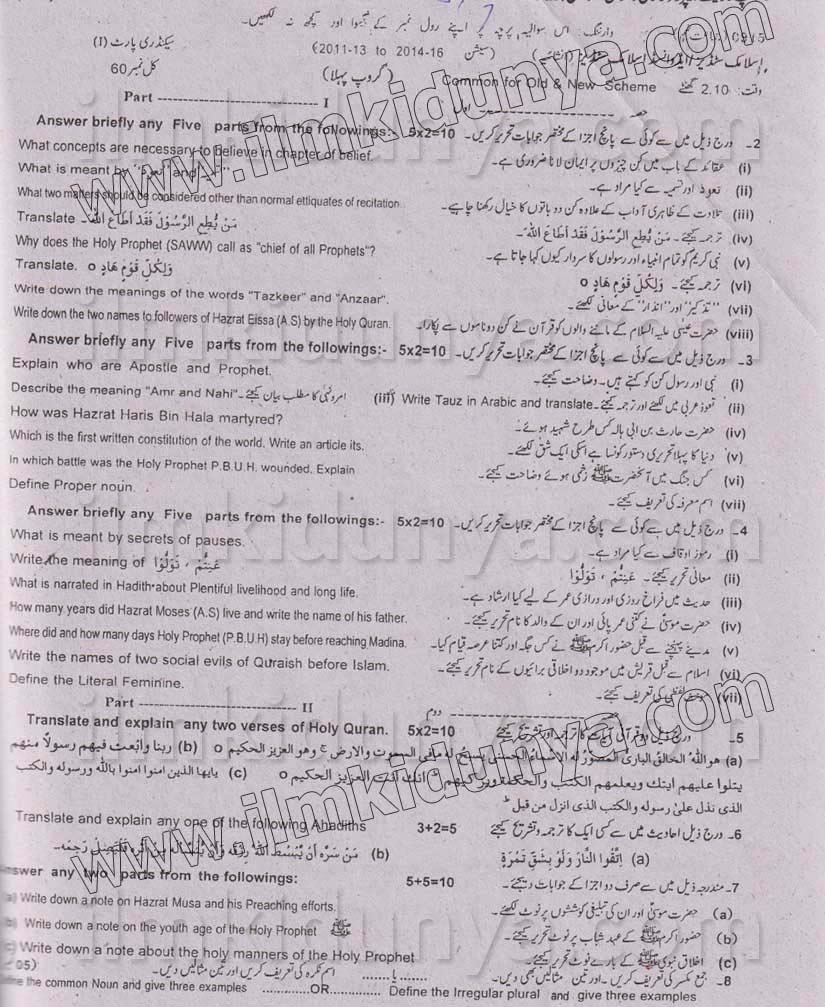 وارننگ: اس سوالیہ پرچہ پر اپنے رول نمبر کے سوا اور کچھ نہ لکھیں۔
(سیشن 2011-13 to 2014-16) سیکنڈری پارٹ (I)
وقت: 2.10 گھنٹے Common for Old & New Scheme (گروپ پہلا) کل نمبر 60
Part ---------------- I حصہ ---------------- اول
Answer briefly any Five parts from the followings:- 5x2=10 2۔ درج ذیل میں سے کوئی سے پانچ اجزا کے مختصر جوابات تحریر کریں۔
What concepts are necessary to believe in chapter of belief. (i) عقائد کے باب میں کن چیزوں پر ایمان لانا ضروری ہے۔
What is meant by (ii) تعوذ اور تسمیہ سے کیا مراد ہے۔
What two matters should be considered other than normal ettiquates of recitation. (iii) تلاوت کے ظاہری آداب کے علاوہ کن دو باتوں کا خیال رکھنا چاہیے۔
Translate مَنْ يُطِعِ الرَّسُوْلَ فَقَدْ اَطَاعَ اللهَ۔ (iv) ترجمہ کیجئے۔ مَنْ يُطِعِ الرَّسُوْلَ فَقَدْ اَطَاعَ اللهَ۔
Why does the Holy Prophet (SAWW) call as "chief of all Prophets"? (v) نبی کریم کو تمام انبیاء اور رسولوں کا سردار کیوں کہا جاتا ہے۔
Translate. وَلِكُلِّ قَوْمٍ هَادٍ o (vi) ترجمہ کیجئے۔ وَلِكُلِّ قَوْمٍ هَادٍ o
Write down the meanings of the words "Tazkeer" and "Anzaar". (vii) "تذکیر" اور "انذار" کے معانی لکھئے۔
Write down the two names to followers of Hazrat Eissa (A.S) by the Holy Quran. (viii) حضرت عیسیٰ علیہ السلام کے ماننے والوں کو قرآن نے کن دو ناموں سے پکارا۔
Answer briefly any Five parts from the followings:- 5x2=10 3۔ درج ذیل میں سے کوئی سے پانچ اجزا کے مختصر جوابات تحریر کریں۔
Explain who are Apostle and Prophet. (i) نبی اور رسول کن کو کہتے ہیں۔ وضاحت کیجئے۔
Describe the meaning "Amr and Nahi". امر و نہی کا مطلب بیان کیجئے۔ (iii) Write Tauz in Arabic and translate. (ii) تعوذ عربی میں لکھئے اور ترجمہ کیجئے۔
How was Hazrat Haris Bin Hala martyred? (iv) حضرت حارث بن ابی ہالہ کس طرح شہید ہوئے۔
Which is the first written constitution of the world. Write an article its. (v) دنیا کا پہلا تحریری دستور کونسا ہے اسکی ایک شق لکھئے۔
In which battle was the Holy Prophet P.B.U.H. wounded. Explain (vi) کس جنگ میں آنحضرت ﷺ زخمی ہوئے وضاحت کیجئے۔
Define Proper noun. (vii) اسم معرفہ کی تعریف کیجئے۔
Answer briefly any Five parts from the followings:- 5x2=10 4۔ درج ذیل میں سے کوئی سے پانچ اجزا کے مختصر جوابات تحریر کریں۔
What is meant by secrets of pauses. (i) رموز اوقاف سے کیا مراد ہے۔
Write the meaning of عَنِتُّمْ ، تَوَلَّوْا (ii) معانی تحریر کیجئے۔ عَنِتُّمْ ، تَوَلَّوْا
What is narrated in Hadith about Plentiful livelihood and long life. (iii) حدیث میں فراخ روزی اور درازی عمر کے لیے کیا ارشاد ہے۔
How many years did Hazrat Moses (A.S) live and write the name of his father. (iv) حضرت موسیٰ نے کتنی عمر پائی اور ان کے والد کا نام تحریر کیجئے۔
Where did and how many days Holy Prophet (P.B.U.H) stay before reaching Madina. (v) مدینے پہنچنے سے قبل حضور اکرم ﷺ نے کس جگہ اور کتنا عرصہ قیام کیا۔
Write the names of two social evils of Quraish before Islam. (vi) اسلام سے قبل قریش میں موجود دو اخلاقی برائیوں کے نام تحریر کیجئے۔
Define the Literal Feminine. (vii) مونث لفظی کی تعریف کیجئے۔
Part ---------------- II حصہ ---------------- دوم
Translate and explain any two verses of Holy Quran. 5x2=10 5۔ درج ذیل دو قرآنی آیات کا ترجمہ اور تشریح کیجئے
(a) هو الله الخالق البارئ المصور له الاسماء الحسنى يسبح له ما فى السموت والارض ج وهو العزيز الحكيم o (b) ربنا وابعث فيهم رسولا منهم
يتلوا عليهم ايتك ويعلمهم الكتب والحكمة ويزكيهم ط انك انت العزيز الحكيم o (c) يايها الذين امنوا امنوا بالله ورسوله والكتب
الذى نذل على رسوله والكتب الذى انزل من قبل ط
Translate and explain any one of the following Ahadiths 3+2=5 6۔ درج ذیل احادیث میں سے کسی ایک کا ترجمہ و تشریح کیجئے
(a) اِتَّقُوا النَّارَ وَلَوْ بِشِقِّ تَمْرَةٍ (b) مَنْ سَرَّهٗ اَنْ يُّبْسَطَ
nswer any two parts from the followings: 5+5=10 7۔ مندرجہ ذیل میں سے صرف دو اجزا کے جوابات دیجئے۔
a) Write down a note on Hazrat Musa and his Preaching efforts. (a) حضرت موسیٰ اور ان کی تبلیغی کوششوں پر نوٹ لکھئے۔
Write down a note on the youth age of the Holy Prophet ﷺ (b) حضور اکرم ﷺ کے عہد شباب پر نوٹ تحریر کیجئے۔
Write down a note about the holy manners of the Holy Prophet (c) اخلاق نبوی ﷺ کے بارے نوٹ تحریر کیجئے۔
05) 8۔ جمع مکسر کی تعریف کریں اور تین مثالیں بھی دیں۔ ........ یا ........ اسم نکرہ کی تعریف کریں اور تین مثالیں دیں۔
e the common Noun and give three examples ............OR............ Define the Irregular plural and give three examples
www.ilmkidunya.com
www.ilmkidunya.com
ilmkidunya.com
ilmkidunya.com
ilmkidunya.com